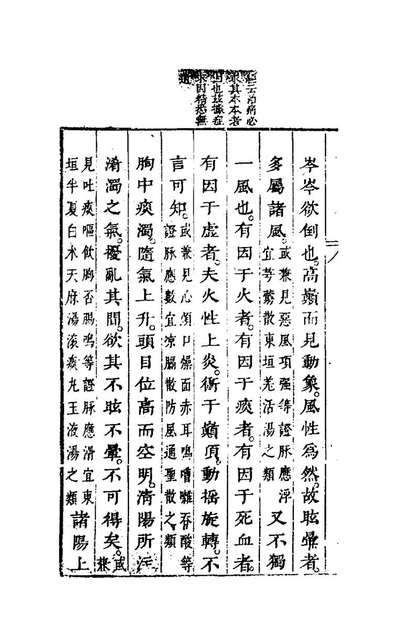 云治病必
求其本本者
因也故據症
求因精悉無
遺
岑岑欲倒也高巔而見動象風性爲然故眩暈者
多屬諸風或兼見惡風項强等證脈應浮
宜芎藭散東垣羌活湯之類又不獨
一風也有因于火者有因于痰者有因于死血者
有因于虛者夫火性上炎衝于巔頂動搖旋轉不
言可知或兼見心煩口燥面赤耳鳴嘈雜吞酸等
證脈應數宜涼膈散防風通聖散之類
胸中痰濁隨氣上升頭目位高而空明清陽所注
淆濁之氣擾亂其間欲其不眩不暈不可得矣或兼
見吐痰嘔飲胸否腸鳴等證脈應滑宜東
垣半夏白朮天麻湯滾痰丸玉液湯之類諸陽上